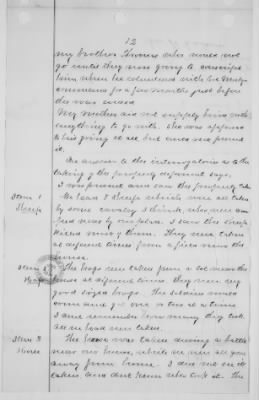 12
my brother Thomas who went not
go until they were going to conscript
him when he volunteered with
command for a few months just before
the war closed.
My Mother did not supply him with
anything to go with. She was opposed
to his going at all but could not prevent
it.
In answer to the interrogatories as to the
taking of the property deponent says,
I was present and saw the property taken
Item 1
Sheep
We had 8 sheep which were all taken
by some cavalry I think, who were
I saw the sheep
killed most of them. They were taken
at different times from a field near the
house.
Item 2
Hogs
The hogs were taken from a lot near the
house at different times, they were very
good sized hogs. The soldiers would
come and get one or two at a time
I cant remember how many they took.
All we had were taken.
Item 3
Horse
The horse was taken during a battle
near our house, while we were all
away from home. I did not see it
taken and dont know who took it. The